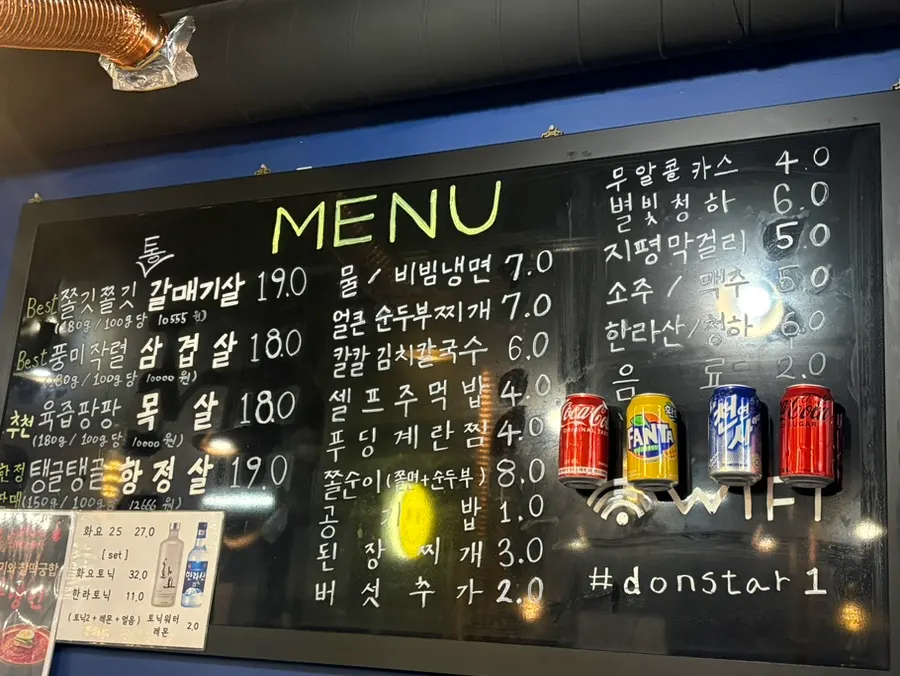 MENU
통
Best 쫄깃쫄깃 갈매기살 19.0
(180g / 100g당 10555 원)
Best 풍미작렬 삼겹살 18.0
(180g / 100g당 10000 원)
추천 육즙팡팡 목살 18.0
(180g / 100g당 10000 원)
한정 탱글탱글 항정살 19.0
판매 (150g / 100g 12666 원)
물 / 비빔냉면 7.0
얼큰 순두부찌개 7.0
칼칼 김치칼국수 6.0
셀프주먹밥 4.0
푸딩계란찜 4.0
쫄순이 (쫄면+순두부) 8.0
공기밥 1.0
된장찌개 3.0
버섯추가 2.0
무알콜카스 4.0
별빛청하 6.0
지평막걸리 5.0
소주 / 맥주 5.0
한라산/청하 6.0
음료 2.0
Coca-Cola
ORIGINAL TASTE
FANTA
천연사이다
Coca-Cola
WIFI
#donstar1
화요 25 27.0
[set]
화요토닉 32.0
한라토닉 11.0
(토닉2 + 레몬 + 얼음)
토닉워터
레몬 2.0
화요
한라산